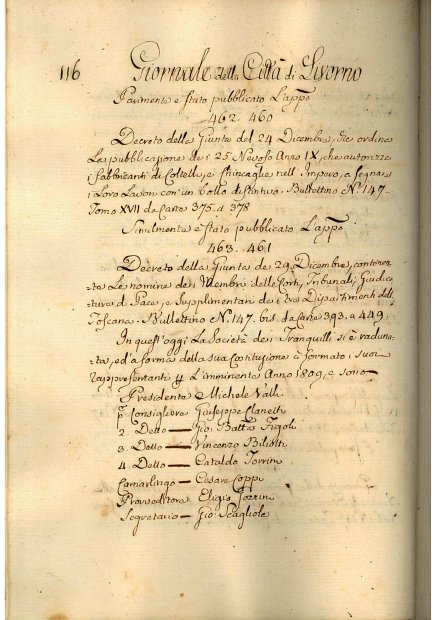 116 Giornale della Città di Livorno
Parimente è stato pubblicato L'app.o
462. 460
Decreto della Giunta del 24 Dicembre, che ordina
La pubblicazione dei 25 Nevoso Anno IX, che autorizza
i fabbricanti di Coltelli, e Chincaglie nell' Impero, a segnare
i Loro Lavori con' un bollo distintivo. Bullettino N.° 147.
Tomo XVII da Carte 375. a 378
Similmente è stato pubblicato L'app.o
463. 461
Decreto della Giunta de 29. Dicembre, contenen
te Le nomine dei Membri delle Corti, Tribunali, Giudica
ture di Pace, e Supplimentari dei tre Dipartimenti della
Toscana. Bullettino N.° 147. bis. da Carte 393. a 449.
In quest'oggi La Società dei Tranquilli si è raduna
ta, ed a forma della sua Costituzione à formato i suoi
Rappresentanti p L'imminente Anno 1809, e sono
Presidente Michele Valli
p.° Consigliere Giuseppe
2. Detto — Gio: Batta Figoli
3. Detto — Vincenzo Biliotti
4. Detto — Cataldo Torrini
Camarlingo — Cesare Coppi
Provveditore Eligio
Segretario — Gio: Scagliole